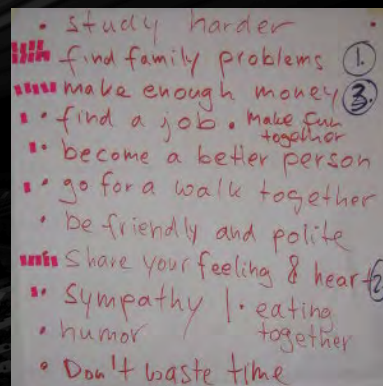 • study harder
find family problems 1.
make enough money 3.
• find a job. • Make fun together
• become a better person
• go for a walk together
• be friendly and polite
Share your feeling & heart 2
• Sympathy • eating together
• humor
• Don't waste time